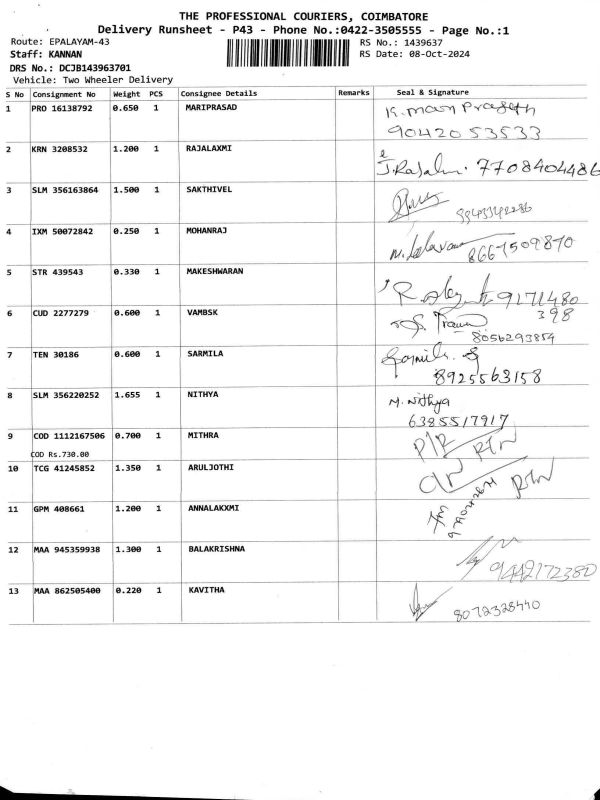 THE PROFESSIONAL COURIERS, COIMBATORE
Delivery Runsheet - P43 - Phone No.:0422-3505555 - Page No.:1
Route: EPALAYAM-43 RS No.: 1439637
Staff: KANNAN RS Date: 08-Oct-2024
DRS No.: DCJB143963701
Vehicle: Two Wheeler Delivery
S No Consignment No Weight PCS Consignee Details Remarks Seal & Signature
1 PRO 16138792 0.650 1 MARIPRASAD
90420 53533
2 KRN 3208532 1.200 1 RAJALAXMI
7708404486
3 SLM 356163864 1.500 1 SAKTHIVEL
4 IXM 50072842 0.250 1 MOHANRAJ
8667509870
5 STR 439543 0.330 1 MAKESHWARAN
9171480
398
6 CUD 2277279 0.600 1 VAMBSK
8056293854
7 TEN 30186 0.600 1 SARMILA
8925563158
8 SLM 356220252 1.655 1 NITHYA
M. Nithya
6385517917
9 COD 1112167506 0.700 1 MITHRA
COD Rs.730.00
P/R RTN
10 TCG 41245852 1.350 1 ARULJOTHI
RTN
11 GPM 408661 1.200 1 ANNALAKXMI
12 MAA 945359938 1.300 1 BALAKRISHNA
9442172380
13 MAA 862505400 0.220 1 KAVITHA
8072328440